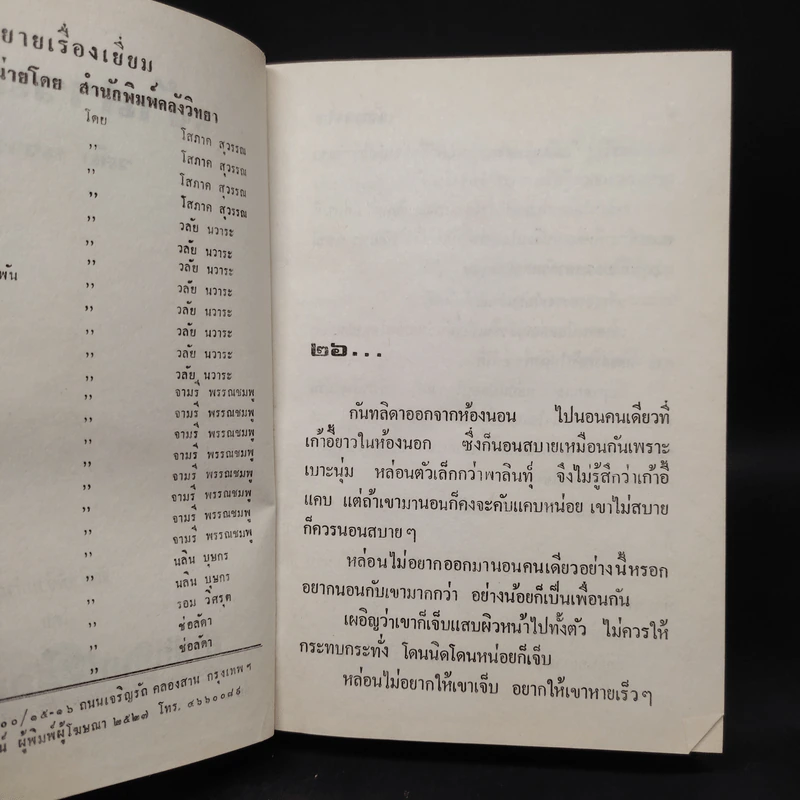 ยายเรื่องเยี่ยม
น่ายโดย สำนักพิมพ์คลังวิทยา
โดย โสภาค สุวรรณ
,, โสภาค สุวรรณ
,, โสภาค สุวรรณ
,, โสภาค สุวรรณ
,, วลัย นวาระ
,, วลัย นวาระ
พัน ,, วลัย นวาระ
,, วลัย นวาระ
,, วลัย นวาระ
,, วลัย นวาระ
,, วลัย นวาระ
,, วลัย นวาระ
,, จามรี พรรณชมพู
,, จามรี พรรณชมพู
,, จามรี พรรณชมพู
,, จามรี พรรณชมพู
,, จามรี พรรณชมพู
,, จามรี พรรณชมพู
,, จามรี พรรณชมพู
,, จามรี พรรณชมพู
,, นลิน บุษกร
,, นลิน บุษกร
,, รอม วิศรุต
,, ช่อลัดา
,, ช่อลัดา
๐๐/๑๕-๑๖ ถนนเจริญรัถ คลองสาน กรุงเทพฯ
น์ ผู้พิมพ์ผู้โฆษณา ๒๕๒๗ โทร. ๔๖๖๐๐๘๙
๒๖...
กันทลิดาออกจากห้องนอน ไปนอนคนเดียวที่
เก้าอี้ยาวในห้องนอก ซึ่งก็นอนสบายเหมือนกันเพราะ
เบาะนุ่ม หล่อนตัวเล็กกว่าพาลินทุ์ จึงไม่รู้สึกว่าเก้าอี้
แคบ แต่ถ้าเขามานอนก็คงจะคับแคบหน่อย เขาไม่สบาย
ก็ควรนอนสบายๆ
หล่อนไม่อยากออกมานอนคนเดียวอย่างนี้หรอก
อยากนอนกับเขามากกว่า อย่างน้อยก็เป็นเพื่อนกัน
เผอิญว่าเขาก็เจ็บแสบผิวหน้าไปทั้งตัว ไม่ควรให้
กระทบกระทั่ง โดนนิดโดนหน่อยก็เจ็บ
หล่อนไม่อยากให้เขาเจ็บ อยากให้เขาหายเร็วๆ